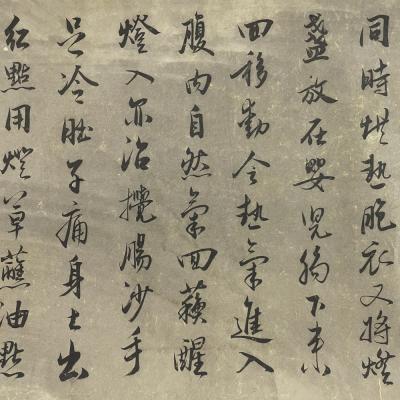 同時烘熱胞衣又將燈
盞放在嬰兒腸下來
回移動令熱氣進入
腹內自然氣回蘇醒
燈入亦治攪腸沙手
足冷肚子痛身上出
紅點用燈草蘸油點